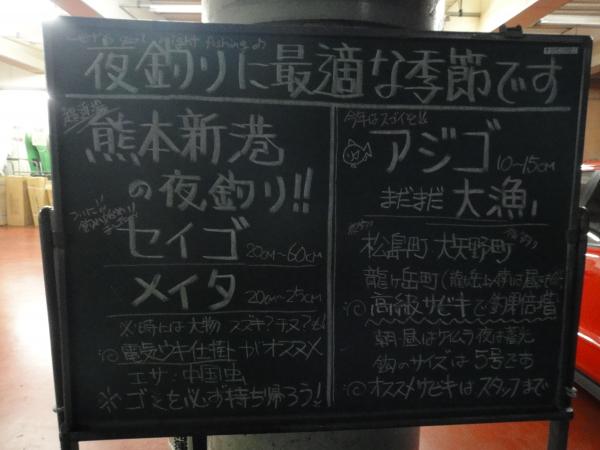 night fishing♪
夜釣りに最適な季節です
熊本新港
の夜釣り!!
セイゴ 20cm〜60cm
メイタ 20cm〜25cm
※時には大物 スズキ?チヌ?も!
◎電気ウキ仕掛がオススメ
エサ:中国虫
※ゴミを必ず持ち帰ろう!
今年はスゴイぞ!!
アジゴ 10〜15cm
まだまだ 大漁!
松島町 大矢野町
龍ヶ岳町
◎高級サビキで釣果倍増
朝・昼はケイムラ 夜は蓄光
鈎のサイズは5号です
◎オススメサビキはスタッフまで